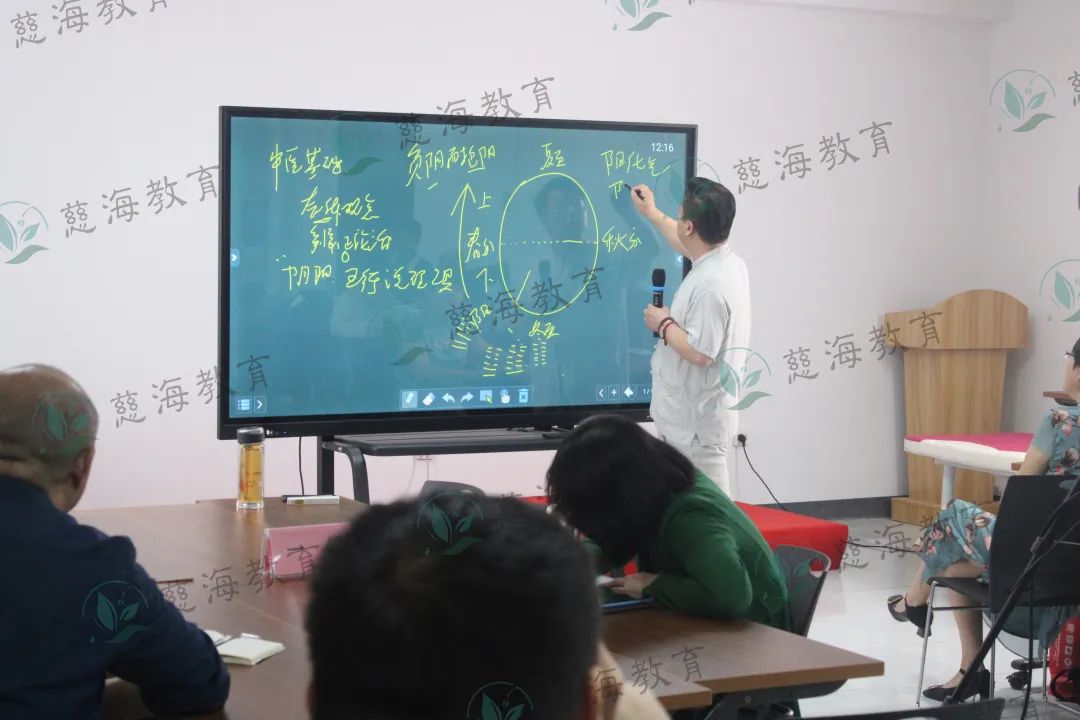 中医基础
整体观念
辨证论治
阴阳 五行 说理工具
负阴而抱阳
上
春分
下
阳
夏至
秋分
冬至
阳化气
12:16
慈海教育
慈海教育
慈海教育
慈海教育
慈海教育
慈海教育
慈海教育
慈海教育
慈海教育
慈海教育